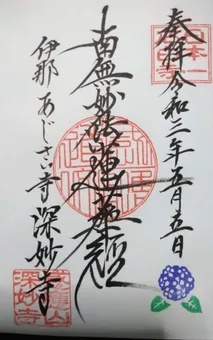 奉拝 令和三年五月五日
南無妙法蓮華経
伊那あじさい寺 深妙寺
深妙寺